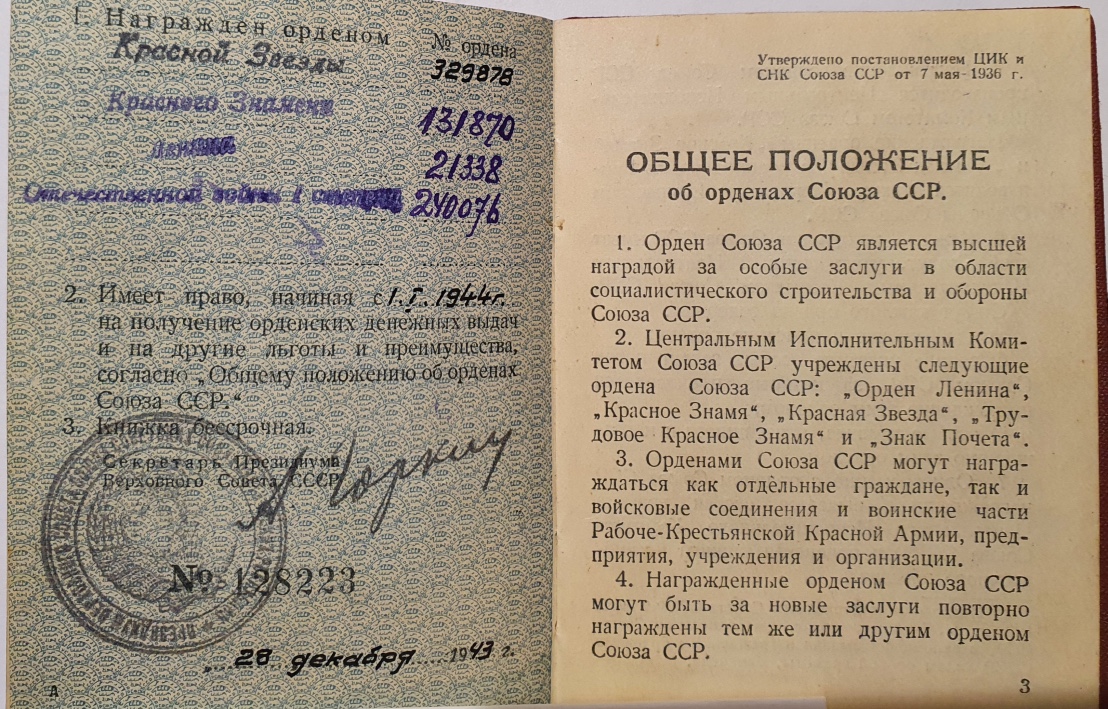 1. Награжден орденом № ордена
Красной Звезды 329878
Красного Знамени 131870
Ленина 21338
Отечественной войны I степени 240076
2. Имеет право, начиная с 1.I.1944г.
на получение орденских денежных выдач
и на другие льготы и преимущества,
согласно „Общему положению об орденах
Союза ССР.“
3. Книжка бессрочная.
Секретарь Президиума
Верховного Совета СССР
№ 128223
28 декабря 1943 г.
А
Утверждено постановлением ЦИК и
СНК Союза ССР от 7 мая-1936 г.
ОБЩЕЕ ПОЛОЖЕНИЕ
об орденах Союза ССР.
1. Орден Союза ССР является высшей
наградой за особые заслуги в области
социалистического строительства и обороны
Союза ССР.
2. Центральным Исполнительным Коми-
тетом Союза ССР учреждены следующие
ордена Союза ССР: „Орден Ленина“,
„Красное Знамя“, „Красная Звезда“, „Тру-
довое Красное Знамя“ и „Знак Почета“.
3. Орденами Союза ССР могут награ-
ждаться как отдельные граждане, так и
войсковые соединения и воинские части
Рабоче-Крестьянской Красной Армии, пред-
приятия, учреждения и организации.
4. Награжденные орденом Союза ССР
могут быть за новые заслуги повторно
награждены тем же или другим орденом
Союза ССР.
3